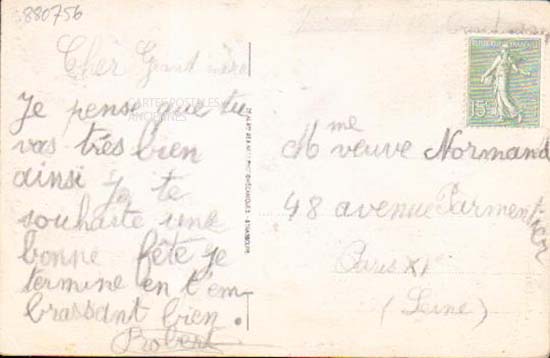 880756
Cher Grand mère
Je pense que tu
vas très bien
ainsi Je te
souhaite une
bonne fête je
termine en t'em-
brassant bien.
Robert
CARTES POSTALES
ANCIENNES
REPUBLIQUE FRANÇAISE
15c
Mme veuve Normand
48 avenue Parmentier
Paris XIe
(Seine)